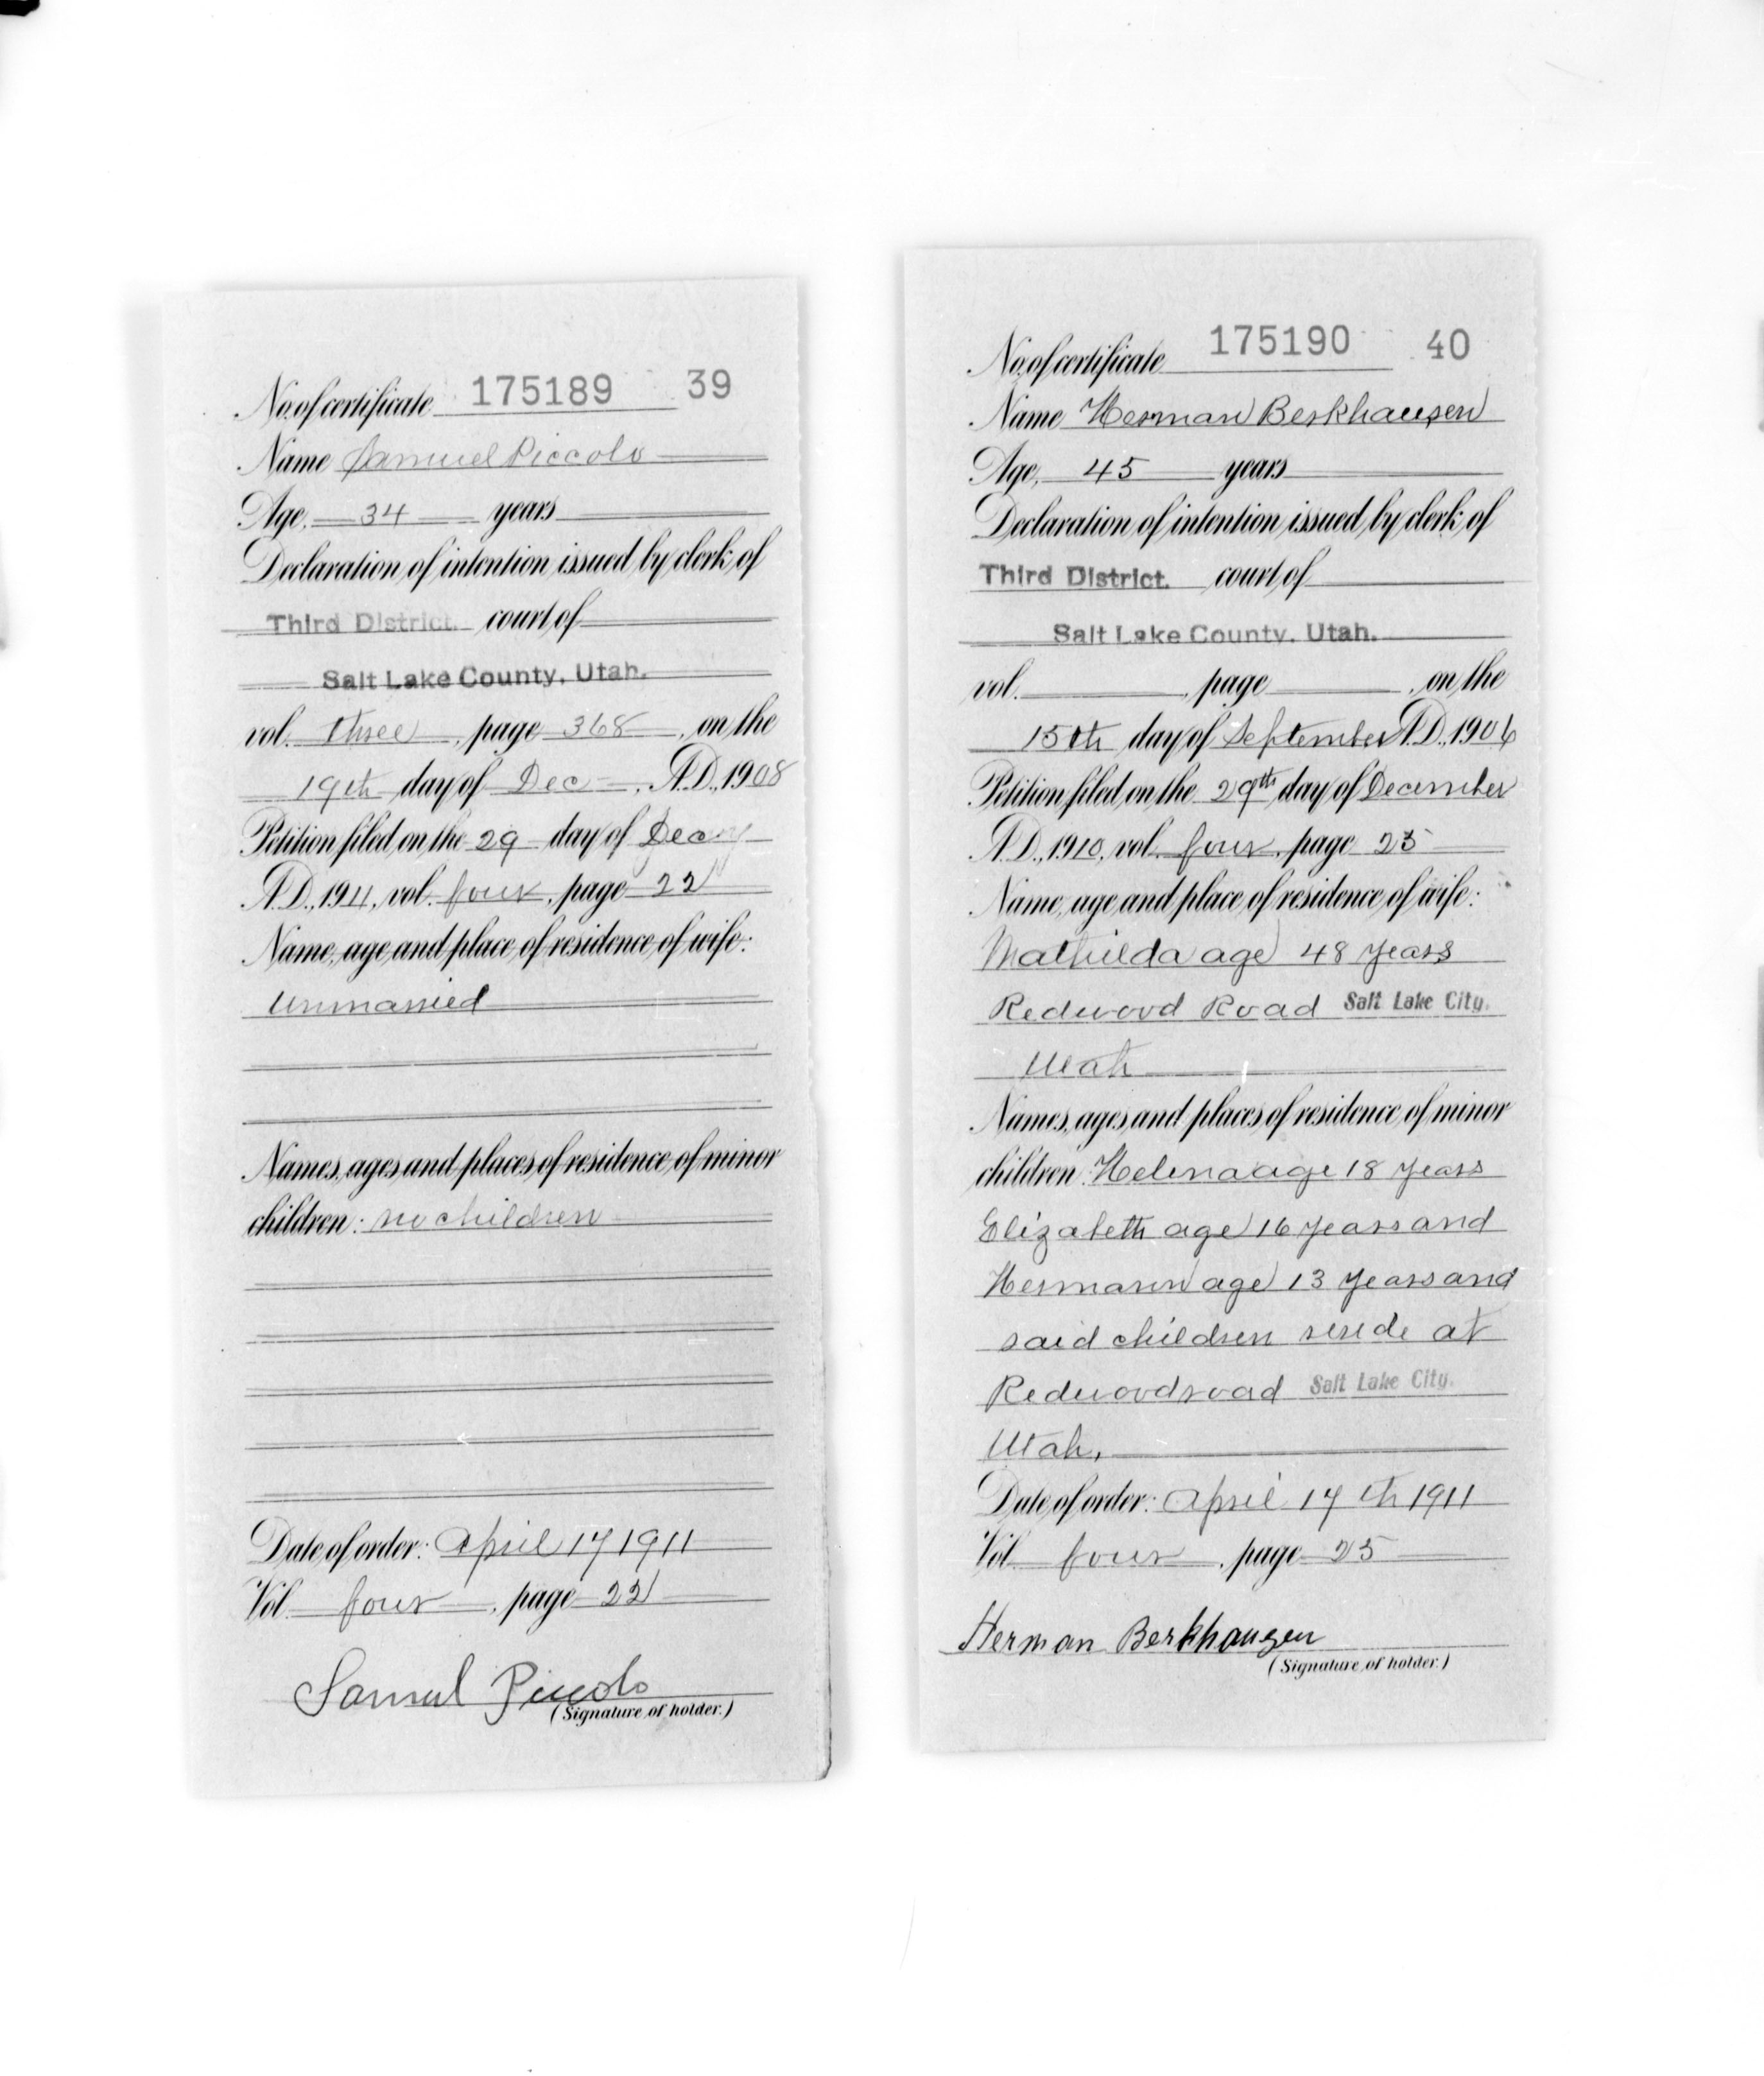 No. of certificate 175189 39
Name Samuel Piccolo
Age, 34 years
Declaration of intention issued by clerk of
Third District. court of
Salt Lake County, Utah.
vol. three, page 368, on the
19th day of Dec, A.D., 1908
Petition filed on the 29 day of Dec
A.D., 1911, vol. four, page 22
Name, age and place of residence of wife:
Unmarried
Names, ages and places of residence of minor
children: no children
Date of order: April 17 1911
Vol. four, page 22
Samuel Piccolo
(Signature of holder.)
No. of certificate 175190 40
Name Herman Berkhausen
Age, 45 years
Declaration of intention issued by clerk of
Third District. court of
Salt Lake County, Utah.
vol. , page , on the
15th day of September A.D., 1906
Petition filed on the 29th day of December
A.D., 1910, vol. four, page 25
Name, age and place of residence of wife:
Mathilda age 48 years
Redwood Road Salt Lake City.
Utah
Names, ages and places of residence of minor
children: Helena age 18 years
Elizabeth age 16 years and
Hermann age 13 years and
said children reside at
Redwood road Salt Lake City.
Utah.
Date of order: April 17th 1911
Vol. four, page 25
Herman Berkhausen
(Signature of holder.)